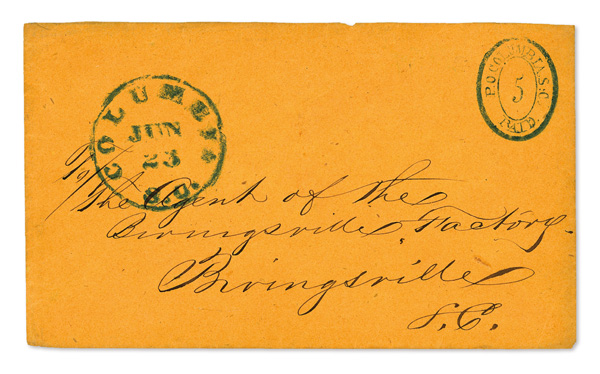 COLUMBIA
JUN
23
S.C.
P.O COLUMBIA. S.C.
5
PAID.
The Agent of the
Bivingsville Factory
Bivingsville
S.C.